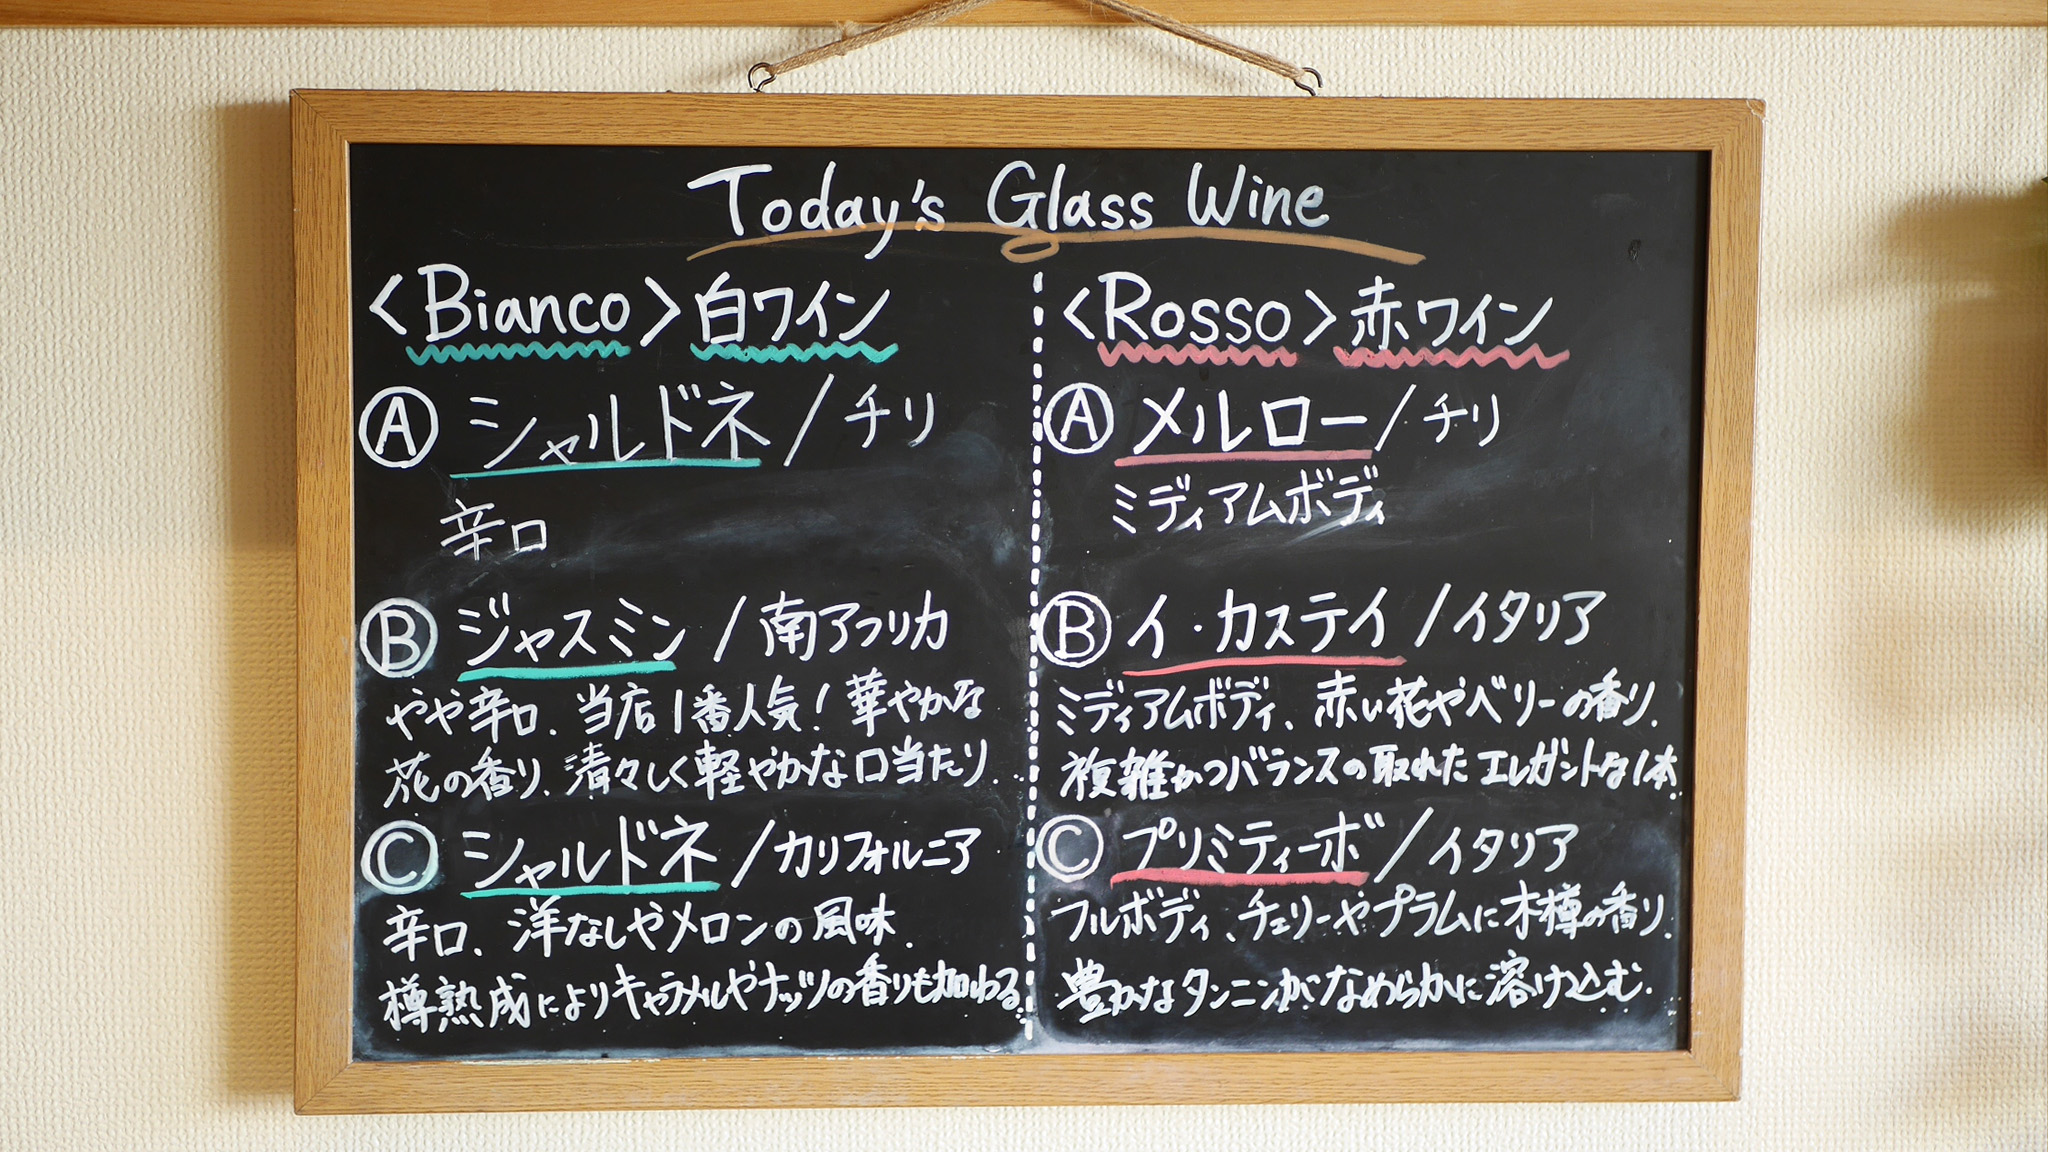 Today's Glass Wine
<Bianco> 白ワイン
Ⓐ シャルドネ/チリ
辛口
Ⓑ ジャスミン/南アフリカ
やや辛口、当店1番人気!華やかな
花の香り、清々しく軽やかな口当たり.
Ⓒ シャルドネ/カリフォルニア
辛口、洋なしやメロンの風味.
樽熟成によりキャラメルやナッツの香りも加わる.
<Rosso> 赤ワイン
Ⓐ メルロー/チリ
ミディアムボディ
Ⓑ イ・カステイ/イタリア
ミディアムボディ、赤い花やベリーの香り.
複雑かつバランスの取れたエレガントな1本.
Ⓒ プリミティーボ/イタリア
フルボディ、チェリーやプラムに木樽の香り.
豊かなタンニンがなめらかに溶け込む.